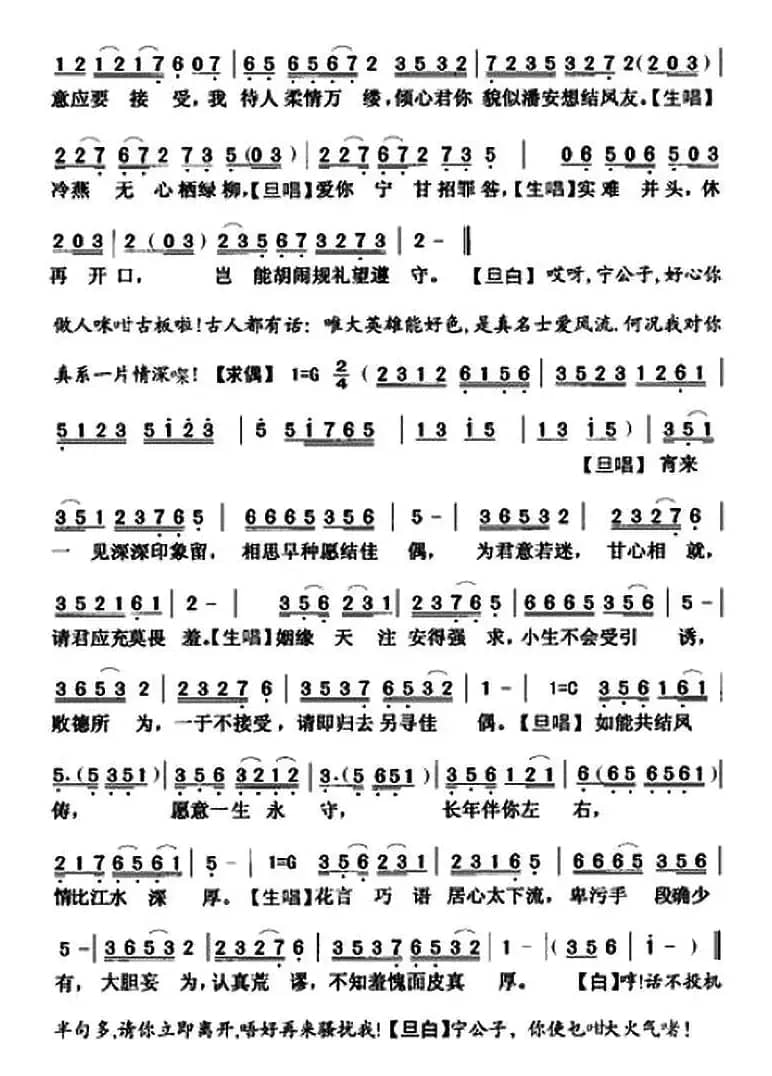 1 2 1 2 1 7 6 0 7 | 6 5 6 5 6 7 2 3 5 3 2 | 7 2 3 5 3 2 7 2 ( 2 0 3 ) |
意应要 接 受，我 待人柔情万 缕，倾心君你 貌似潘安想结凤友。【生唱】
2 2 7 6 7 2 7 3 5 5 ( 0 3 ) | 2 2 7 6 7 2 7 3 5 | 0 6 5 0 6 5 0 3
冷燕 无 心栖绿柳，【旦唱】爱你 宁 甘招罪咎，【生唱】实难 并头，休
2 0 3 | 2 ( 0 3 ) 2 3 5 6 7 3 2 7 3 | 2 - ‖
再 开口， 岂 能胡闹规礼望遵 守。【旦白】哎呀，宁公子，好心你
做人咪咁古板啦！古人都有话：唯大英雄能好色，是真名士爱风流，何况我对你
真系一片情深㗎！【求偶】 1=G 2/4 ( 2 3 1 2 6 1 5 6 | 3 5 2 3 1 2 6 1 |
5 1 2 3 5 i 2 3 | 5 5 i 7 6 5 | 1 3 i 5 | 1 3 i 5 ) | 3 5 1
【旦唱】宵来
3 5 1 2 3 7 6 5 | 6 6 6 5 3 5 6 | 5 - | 3 6 5 3 2 | 2 3 2 7 6 |
一 见深深印象留， 相思早种愿结佳 偶， 为君意若迷， 甘心相 就，
3 5 2 1 6 1 | 2 - | 3 5 6 2 3 1 | 2 3 7 6 5 | 6 6 6 5 3 5 6 | 5 - |
请君应充莫畏 羞。【生唱】姻缘 天 注 安得强 求，小生不会受引 诱，
3 6 5 3 2 | 2 3 2 7 6 | 3 5 3 7 6 5 3 2 | 1 - | 1=C 3 5 6 1 6 1 |
败德所 为， 一于不接受，请即归去 另寻佳 偶。【旦唱】如能共结凤
5 · ( 5 3 5 1 ) | 3 5 6 3 2 1 2 | 3 · ( 5 6 5 1 ) | 3 5 6 1 2 1 | 6 ( 6 5 6 5 6 1 ) |
俦， 愿意一生 永 守， 长年伴你左 右，
2 1 7 6 5 6 1 | 5 - | 1=G 3 5 6 2 3 1 | 2 3 1 6 5 | 6 6 6 5 3 5 6 |
情比江水 深 厚。【生唱】花言 巧 语 居心太下流，卑污手 段确少
5 - | 3 6 5 3 2 | 2 3 2 7 6 | 3 5 3 7 6 5 3 2 | 1 - | ( 3 5 6 | i - ) ‖
有， 大胆妄 为，认真荒 谬， 不知羞愧面皮真 厚。【白】哼！话不投机
半句多，请你立即离开，唔好再来骚扰我！【旦白】宁公子，你使乜咁大火气啫！